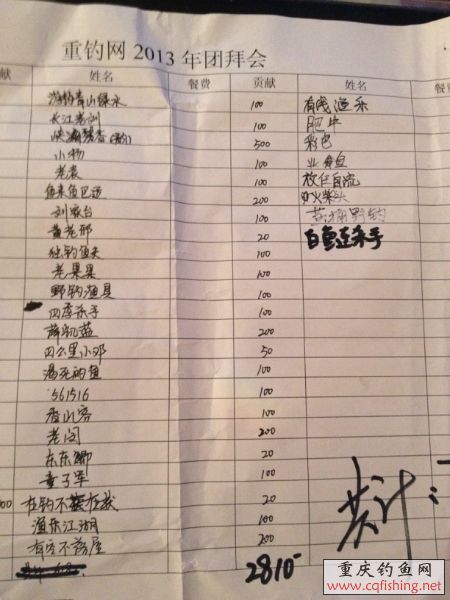 重钓网 2013 年团拜会
献 姓名 餐费 贡献 姓名 餐费
游钓青山绿水 100 有线渔乐
长江老刘 100 肥牛
500 彩色
小杨 100 业余鱼
老袁 100 放任自流
鱼来鱼巴适 200 火柴头
刘家台 100 野钓
黄老邪 20 白鱼连杀手
独钓鱼夫 100
老果果 100
野钓渔具 100
四季杀手 100
薛凯蓝 200
四公里小邓 50
渴死的鱼 100
561516 100
香山客 100
老阎 200
东东卿 20
童子军 100
00 在钓不在获 20
渔乐江湖 100
有空不落屋 200
2810
共计:
重庆钓鱼网
www.cqfishing.net